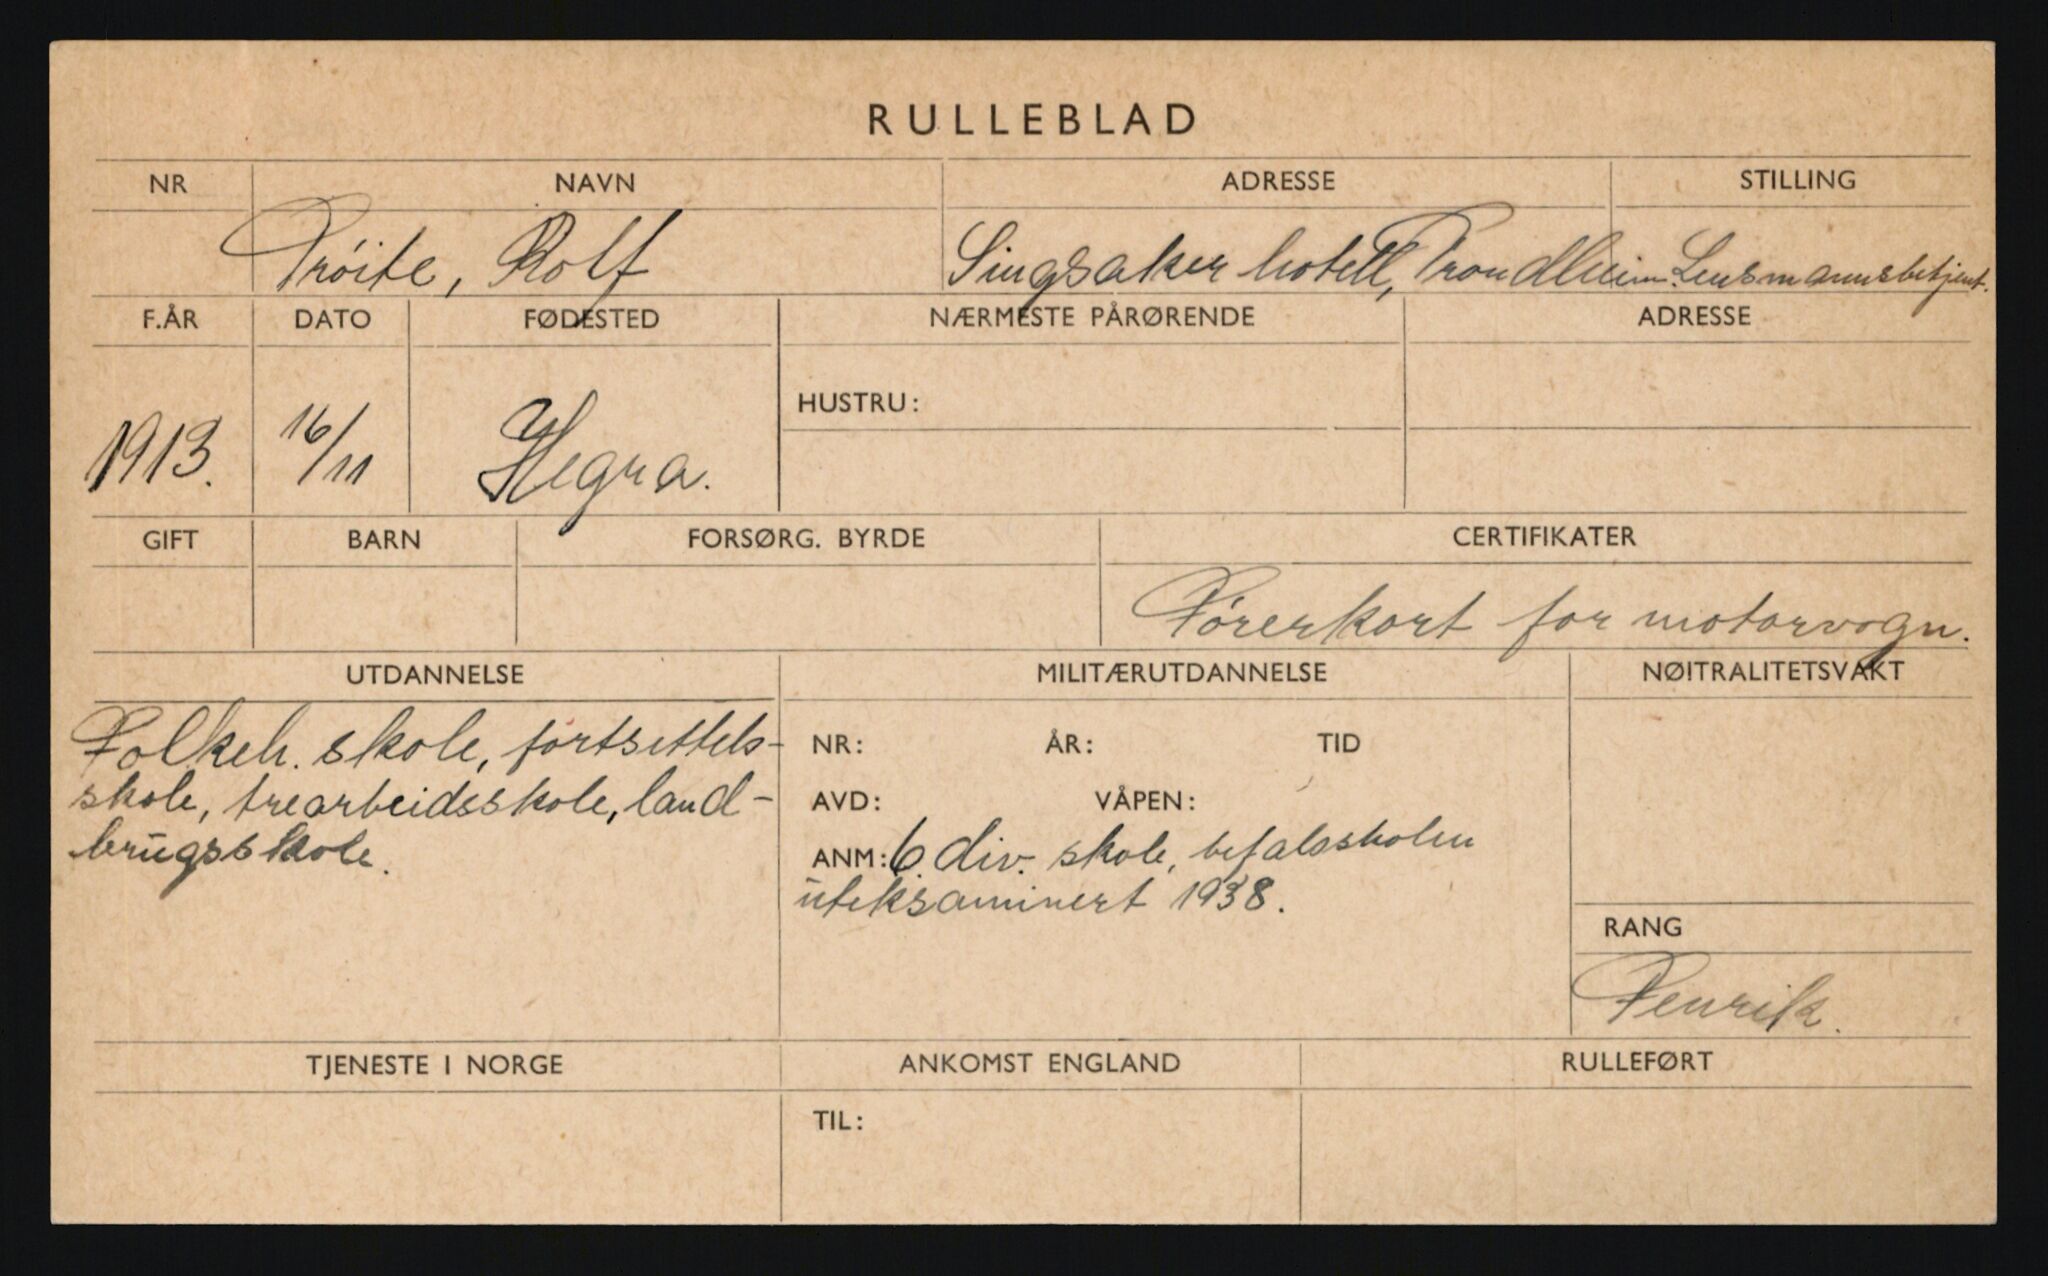 RULLEBLAD
NR NAVN ADRESSE STILLING
Trøite, Rolf Singsaker hotell, Trondheim. Lensmannsbetjent.
F.ÅR DATO FØDESTED NÆRMESTE PÅRØRENDE ADRESSE
HUSTRU:
1913. 16/11 Hegra.
GIFT BARN FORSØRG. BYRDE CERTIFIKATER
Førerkort for motorvogn.
UTDANNELSE MILITÆRUTDANNELSE NØITRALITETSVAKT
Folkeh. skole, fortsettels- NR: ÅR: TID
skole, trearbeidsskole, land- AVD: VÅPEN:
brugsskole. ANM: 6. div. skole, befalsskolen
uteksaminert 1938.
RANG
Fenrik.
TJENESTE I NORGE ANKOMST ENGLAND RULLEFØRT
TIL: